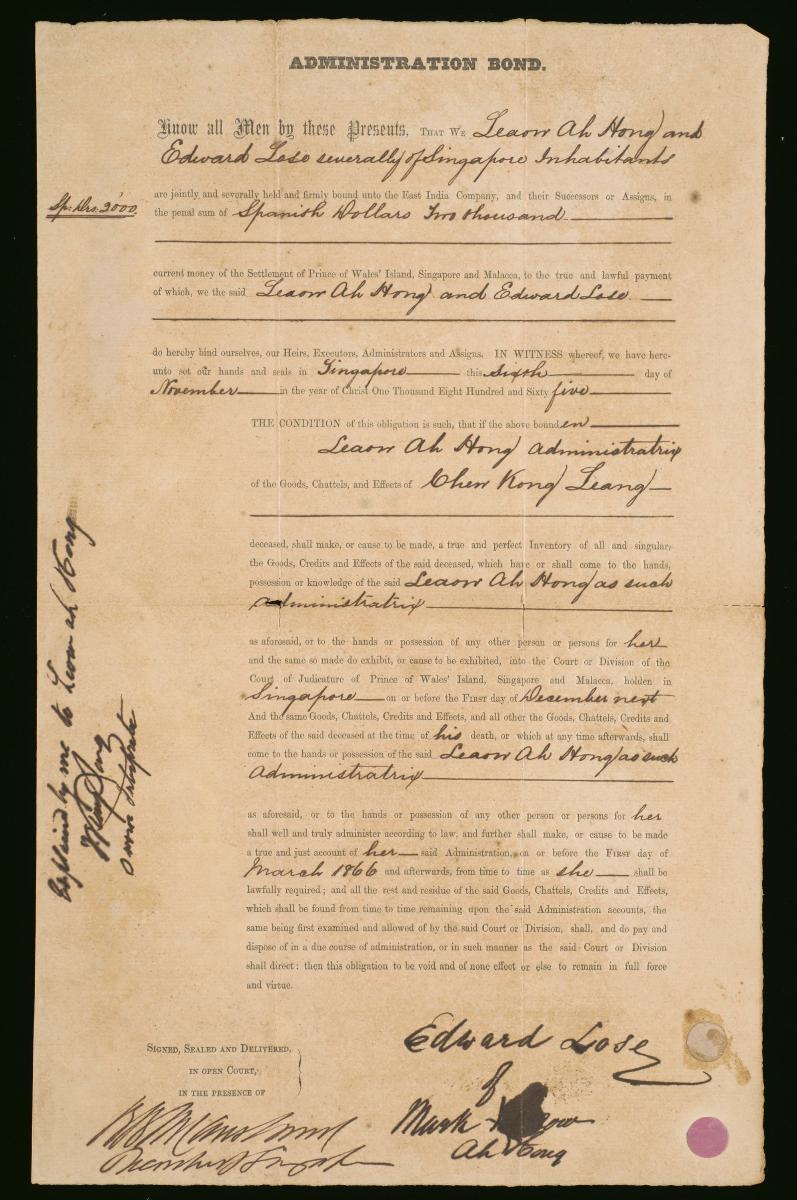 ADMINISTRATION BOND.
Know all Men by these Presents, THAT WE Leaow Ah Hong and
Edward Lose severally of Singapore Inhabitants
are jointly and severally held and firmly bound unto the East India Company, and their Successors or Assigns, in
Sp: Drs: 2000.
the penal sum of Spanish Dollars Two thousand
current money of the Settlement of Prince of Wales' Island, Singapore and Malacca, to the true and lawful payment
of which, we the said Leaow Ah Hong and Edward Lose
do hereby bind ourselves, our Heirs, Executors, Administrators and Assigns. IN WITNESS whereof, we have here-
unto set our hands and seals in Singapore this sixth day of
November in the year of Christ One Thousand Eight Hundred and Sixty five
THE CONDITION of this obligation is such, that if the above bounden
Leaow Ah Hong Administratrix
of the Goods, Chattels, and Effects of Chew Kong Leang
deceased, shall make, or cause to be made, a true and perfect Inventory of all and singular,
the Goods, Credits and Effects of the said deceased, which have or shall come to the hands,
possession or knowledge of the said Leaow Ah Hong as such
administratrix
as aforesaid, or to the hands or possession of any other person or persons for her
and the same so made do exhibit, or cause to be exhibited, into the Court or Division of the
Court of Judicature of Prince of Wales' Island, Singapore and Malacca, holden in
Singapore on or before the FIRST day of December next
And the same Goods, Chattels, Credits and Effects, and all other the Goods, Chattels, Credits and
Effects of the said deceased at the time of his death, or which at any time afterwards, shall
come to the hands or possession of the said Leaow Ah Hong as such
Administratrix
as aforesaid, or to the hands or possession of any other person or persons for her
shall well and truly administer according to law, and further shall make, or cause to be made
a true and just account of her said Administration, on or before the FIRST day of
March 1866 and afterwards, from time to time as she shall be
lawfully required; and all the rest and residue of the said Goods, Chattels, Credits and Effects,
which shall be found from time to time remaining upon the said Administration accounts, the
same being first examined and allowed of by the said Court or Division, shall, and do pay and
dispose of in a due course of administration, or in such manner as the said Court or Division
shall direct: then this obligation to be void and of none effect or else to remain in full force
and virtue.
Explained by me to Leow ah Hong
Edward Lose
SIGNED, SEALED AND DELIVERED,
IN OPEN COURT,
IN THE PRESENCE OF
of
Mark
Ah Hong